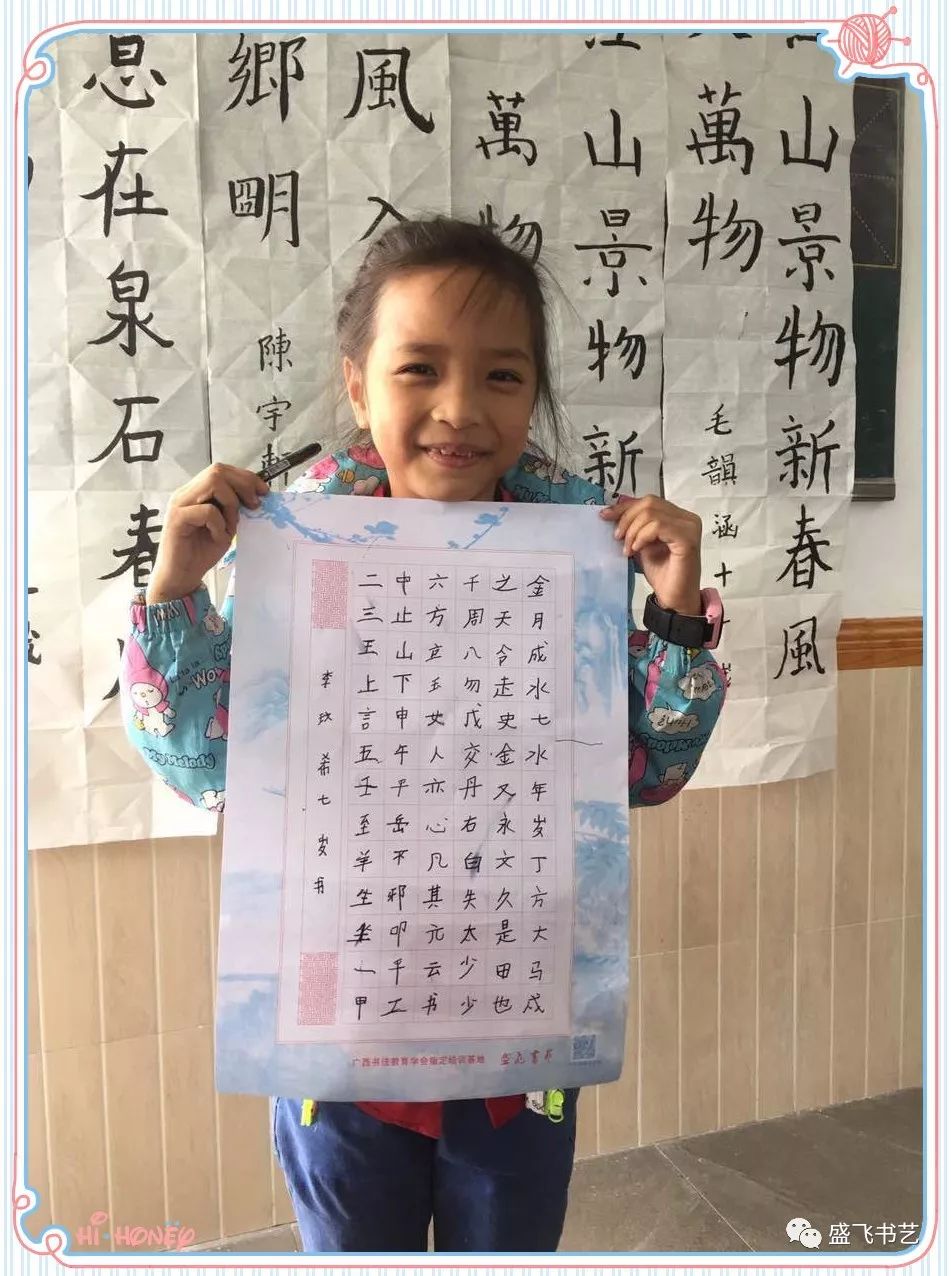 山景物新春風
萬物
毛韻涵十
山景物新
萬物
風入
鄉明
陳宇軒
息在泉石春
金月成水七水年岁丁方大马戍
之天合走史金又永文久是田也
千周八勿戊交丹右白失太少少
六方立玉女人亦心凡其亢云书
中止山下申午平岳不邪叩平工
二三王上言五壬至羊生坐一甲
李玫希七岁书
广西书法教育学会指定培训基地
盛飞書艺
HI·HONEY
盛飞书艺